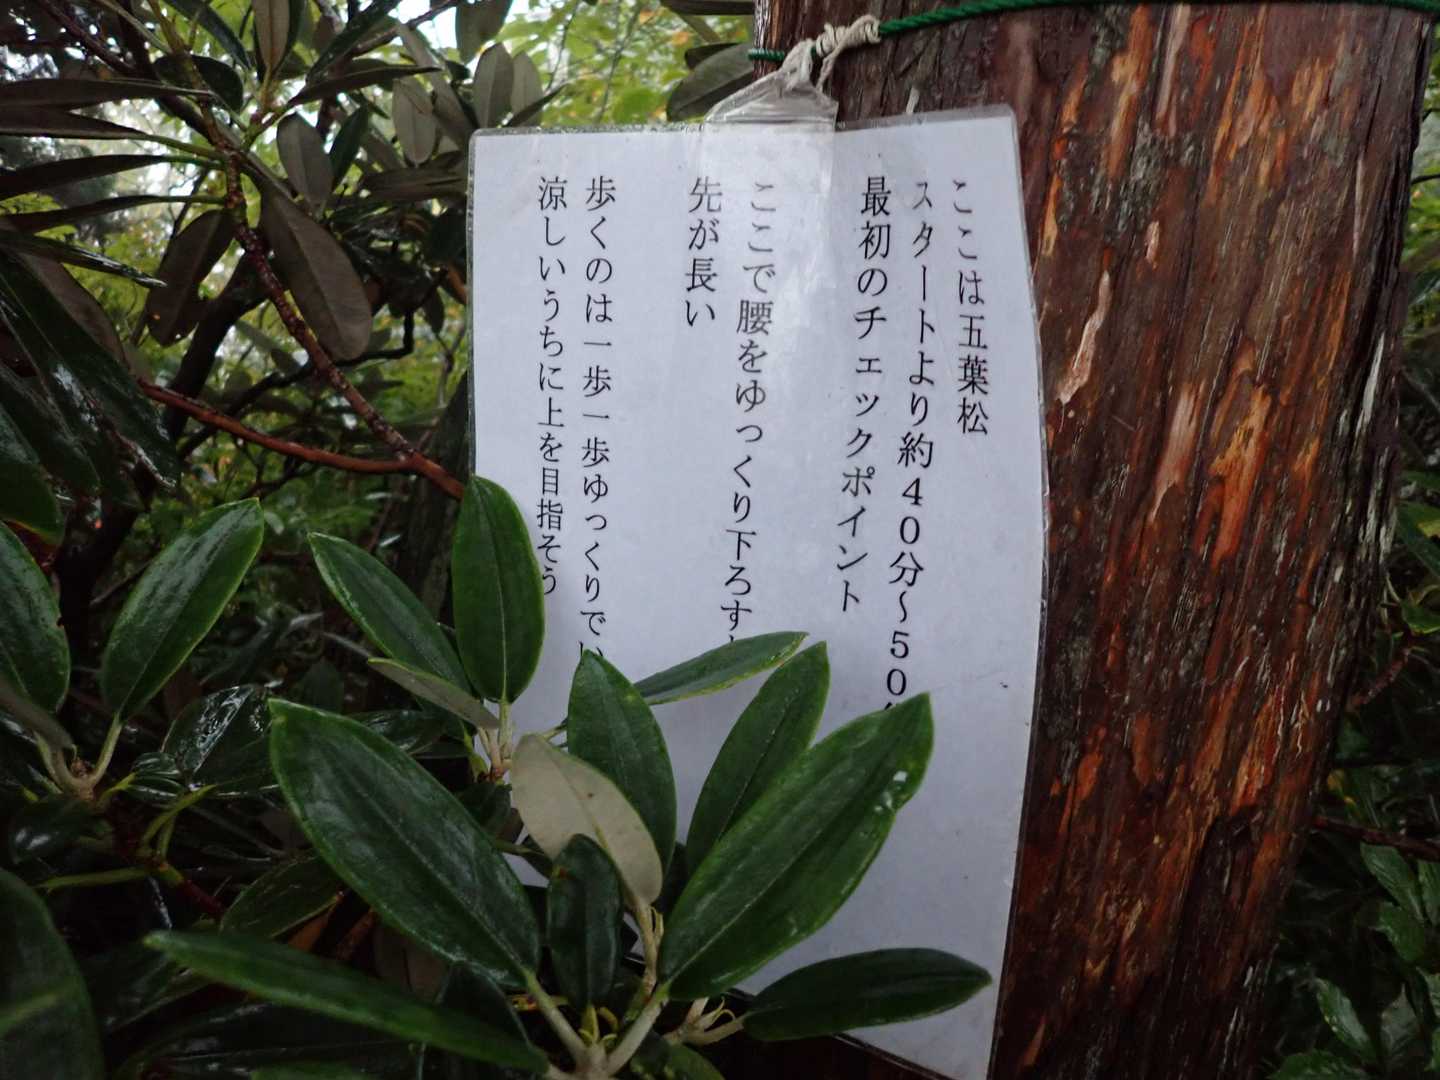 ここは五葉松
スタートより約４０分～５０
最初のチェックポイント
ここで腰をゆっくり下ろす
先が長い
歩くのは一歩一歩ゆっくりで
涼しいうちに上を目指そう